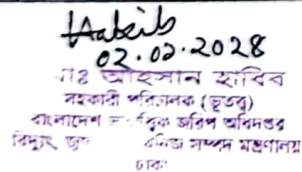 Habib
02.02.2028
মোঃ আহসান হাবিব
সহকারী পরিচালক (ভূতত্ত্ব)
বাংলাদেশ জরিপ অধিদপ্তর
বিদ্যুৎ সম্পদ মন্ত্রণালয়
ঢাকা